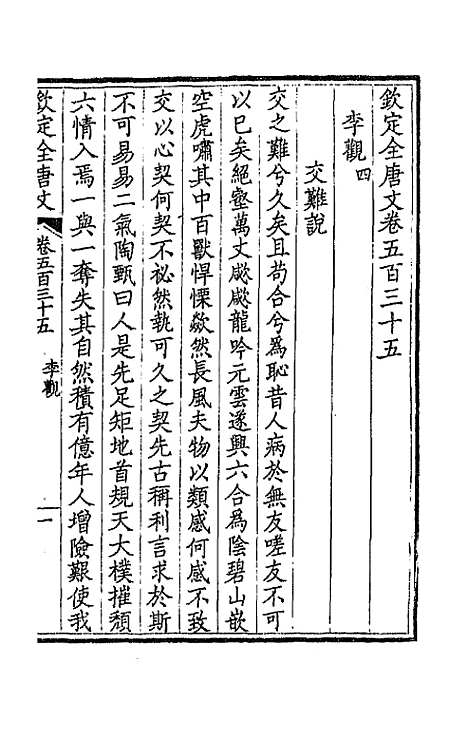 欽定全唐文卷五百三十五
李觀四
交難說
交之難兮久矣且苟合兮為恥昔人病於無友嗟友不可
以已矣絕壑萬丈歘歘龍吟元雲遂興六合為陰碧山嵌
空虎嘯其中百獸悍慄歘然長風夫物以類感何感不致
交以心契何契不祕然孰可久之契先古稱利言求於斯
不可易易二氣陶甄曰人是先足矩地首規天大樸摧頹
六情入焉一與一奪失其自然積有億年人增險艱使我
欽定全唐文
卷五百三十五
李觀
一